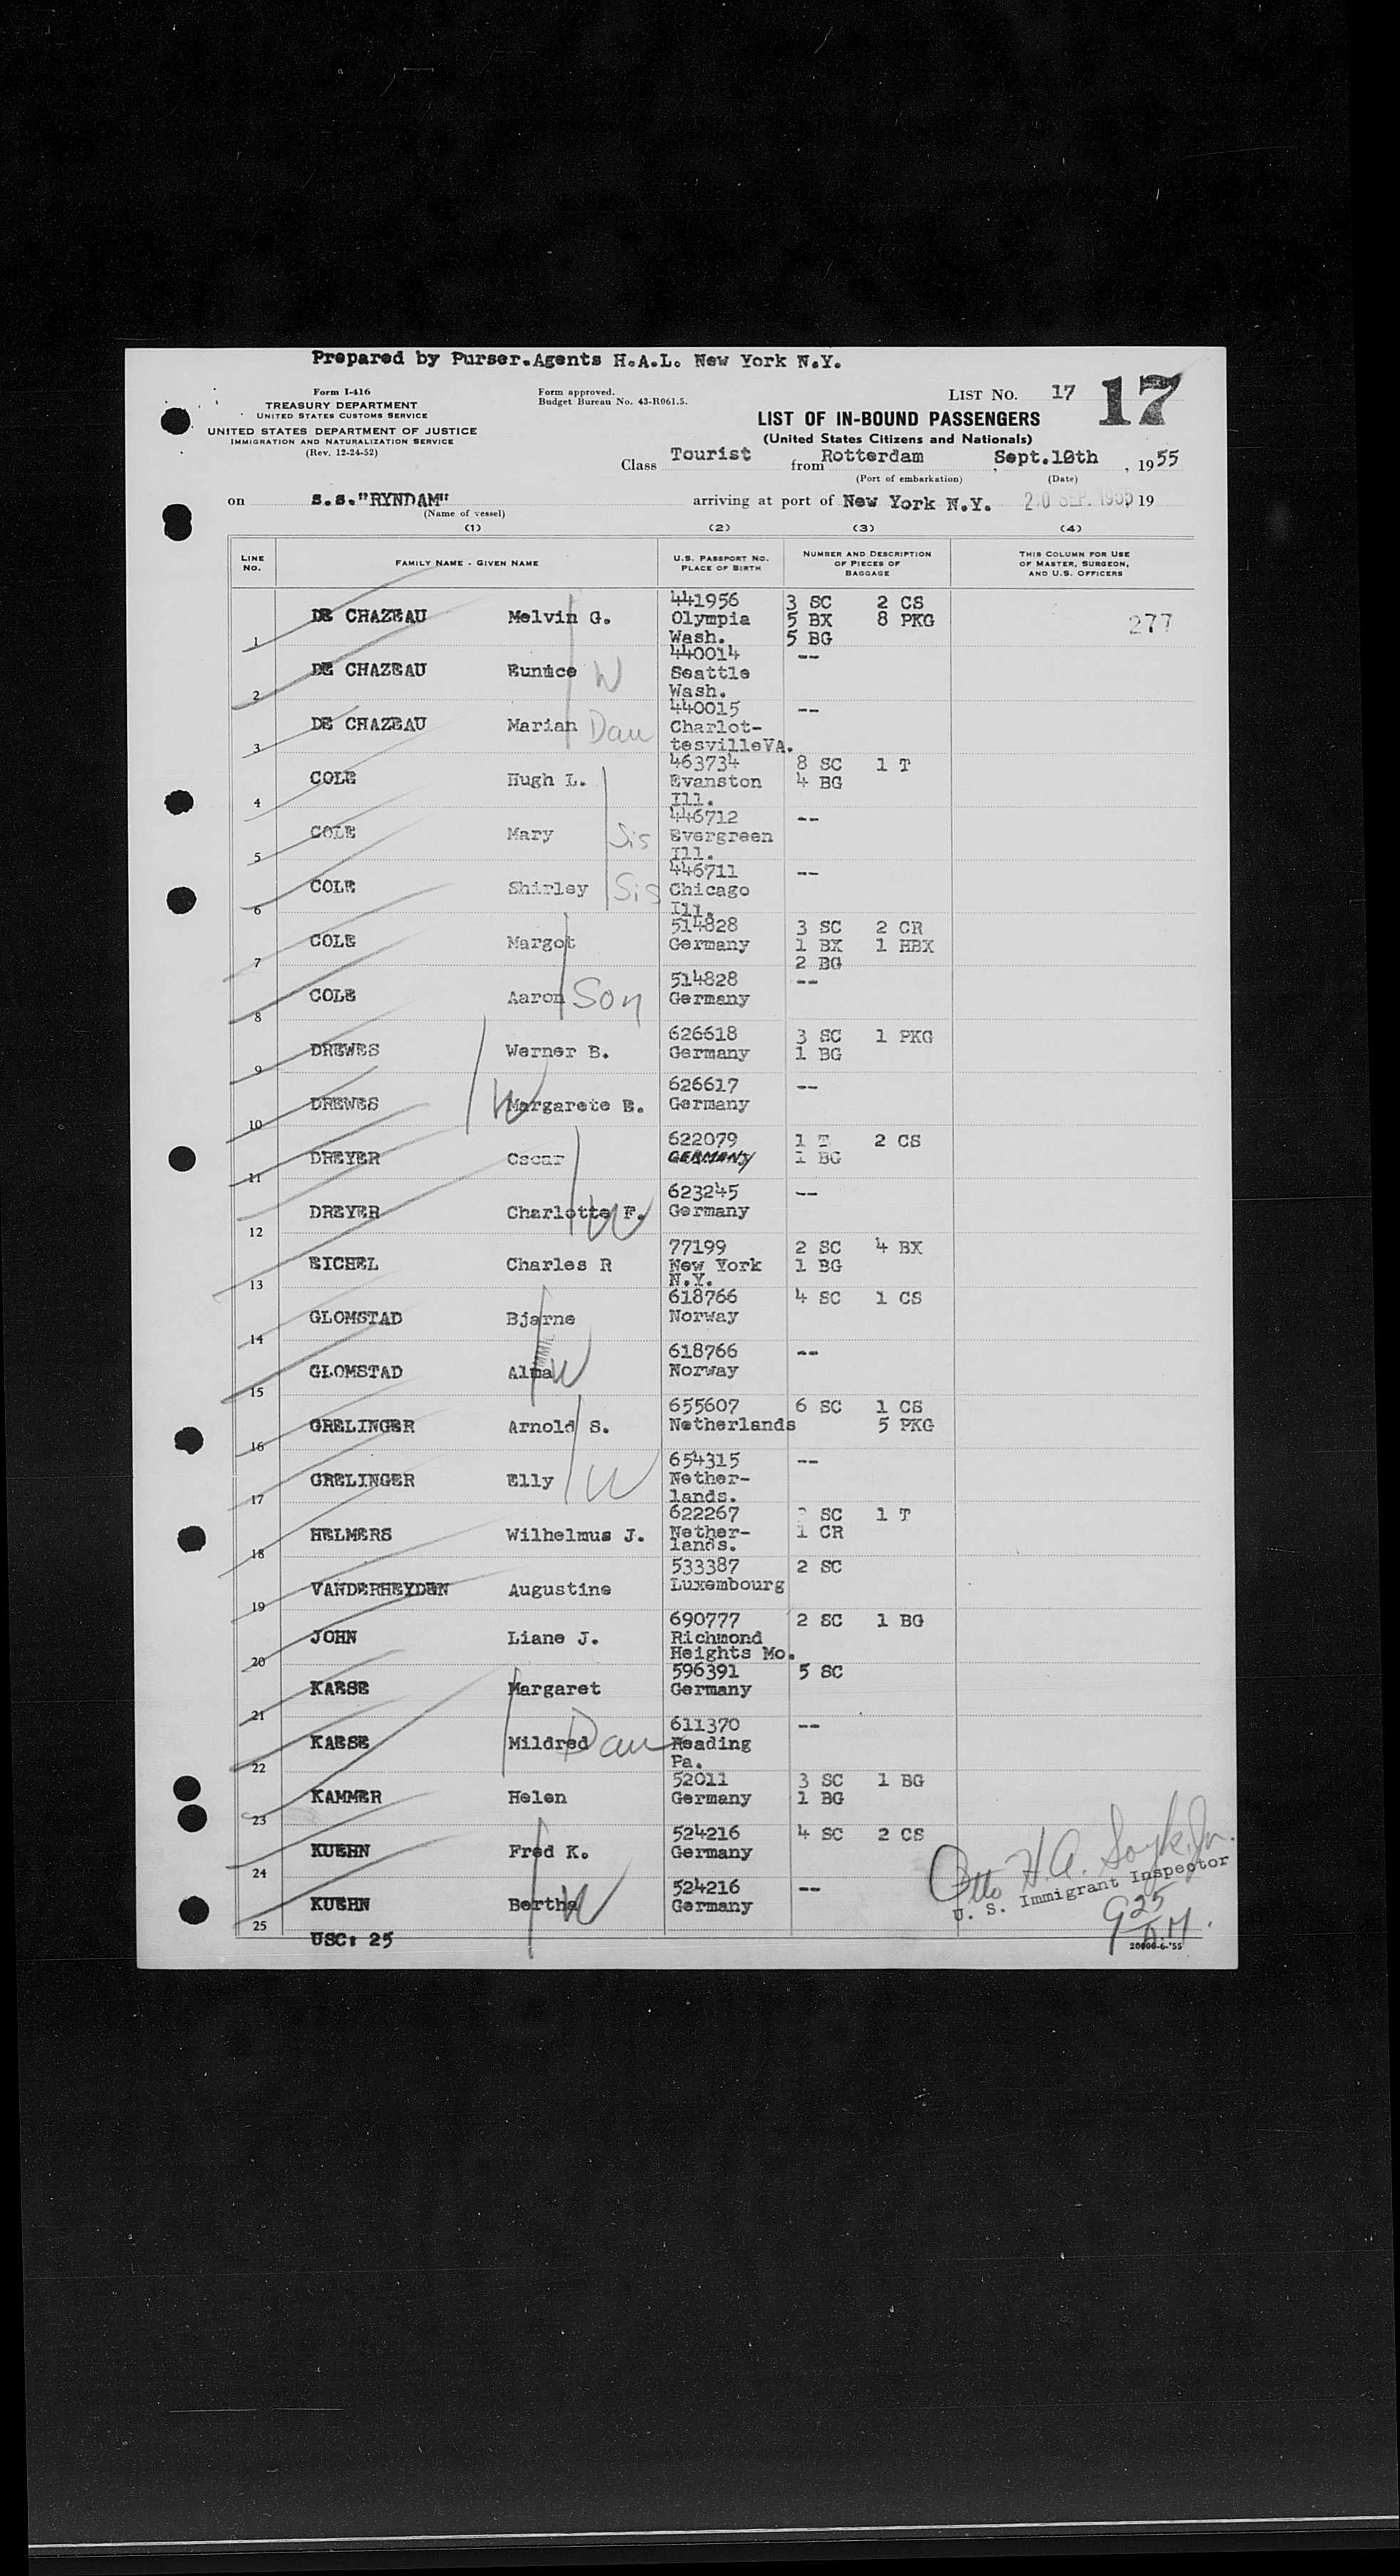 Prepared by Purser.Agents H.A.L. New York N.Y.
Form I-416
TREASURY DEPARTMENT
UNITED STATES CUSTOMS SERVICE
UNITED STATES DEPARTMENT OF JUSTICE
IMMIGRATION AND NATURALIZATION SERVICE
(Rev. 12-24-52)
Form approved.
Budget Bureau No. 43-R061.5.
LIST NO. 17 17
LIST OF IN-BOUND PASSENGERS
(United States Citizens and Nationals)
Class Tourist from Rotterdam , Sept.10th , 1955
(Port of embarkation) (Date)
on s.s."RYNDAM" arriving at port of New York N.Y. 20 SEP. 1955, 19
(Name of vessel)
(1) (2) (3) (4)
LINE NO. FAMILY NAME - GIVEN NAME U.S. PASSPORT NO. PLACE OF BIRTH NUMBER AND DESCRIPTION OF PIECES OF BAGGAGE THIS COLUMN FOR USE OF MASTER, SURGEON, AND U.S. OFFICERS
1 DE CHAZEAU Melvin G. 441956 Olympia Wash. 3 SC 2 CS 5 BX 8 PKG 5 BG 277
2 DE CHAZEAU Eunice W 440014 Seattle Wash. --
3 DE CHAZEAU Marian Dau 440015 Charlot- tesvilleVA. --
4 COLE Hugh L. 463734 Evanston Ill. 8 SC 1 T 4 BG
5 COLE Mary Sis 446712 Evergreen Ill. --
6 COLE Shirley Sis 446711 Chicago Ill. --
7 COLE Margot 514828 Germany 3 SC 2 CR 1 BX 1 HBX 2 BG
8 COLE Aaron Son 514828 Germany --
9 DREWES Werner B. 626618 Germany 3 SC 1 PKG 1 BG
10 DREWES W Margarete E. 626617 Germany --
11 DREYER Oscar 622079 GERMANY 1 T 2 CS 1 BG
12 DREYER Charlotte F. W 623245 Germany --
13 EICHEL Charles R 77199 New York N.Y. 2 SC 4 BX 1 BG
14 GLOMSTAD Bjarne 618766 Norway 4 SC 1 CS
15 GLOMSTAD Alma W 618766 Norway --
16 GRELINGER Arnold S. 655607 Netherlands 6 SC 1 CS 5 PKG
17 GRELINGER Elly W 654315 Nether- lands. --
18 HELMERS Wilhelmus J. 622267 Nether- lands. SC 1 T 1 CR
19 VANDERHEYDEN Augustine 533387 Luxembourg 2 SC
20 JOHN Liane J. 690777 Richmond Heights Mo. 2 SC 1 BG
21 KAESE Margaret 596391 Germany 5 SC
22 KAESE Mildred Dau 611370 Reading Pa. --
23 KAMMER Helen 52011 Germany 3 SC 1 BG 1 BG
24 KUEHN Fred K. 524216 Germany 4 SC 2 CS
25 KUEHN Bertha W 524216 Germany --
USC: 25
Otto H.A. Jr.
U. S. Immigrant Inspector
9 25 A.M.
20000-6-'55